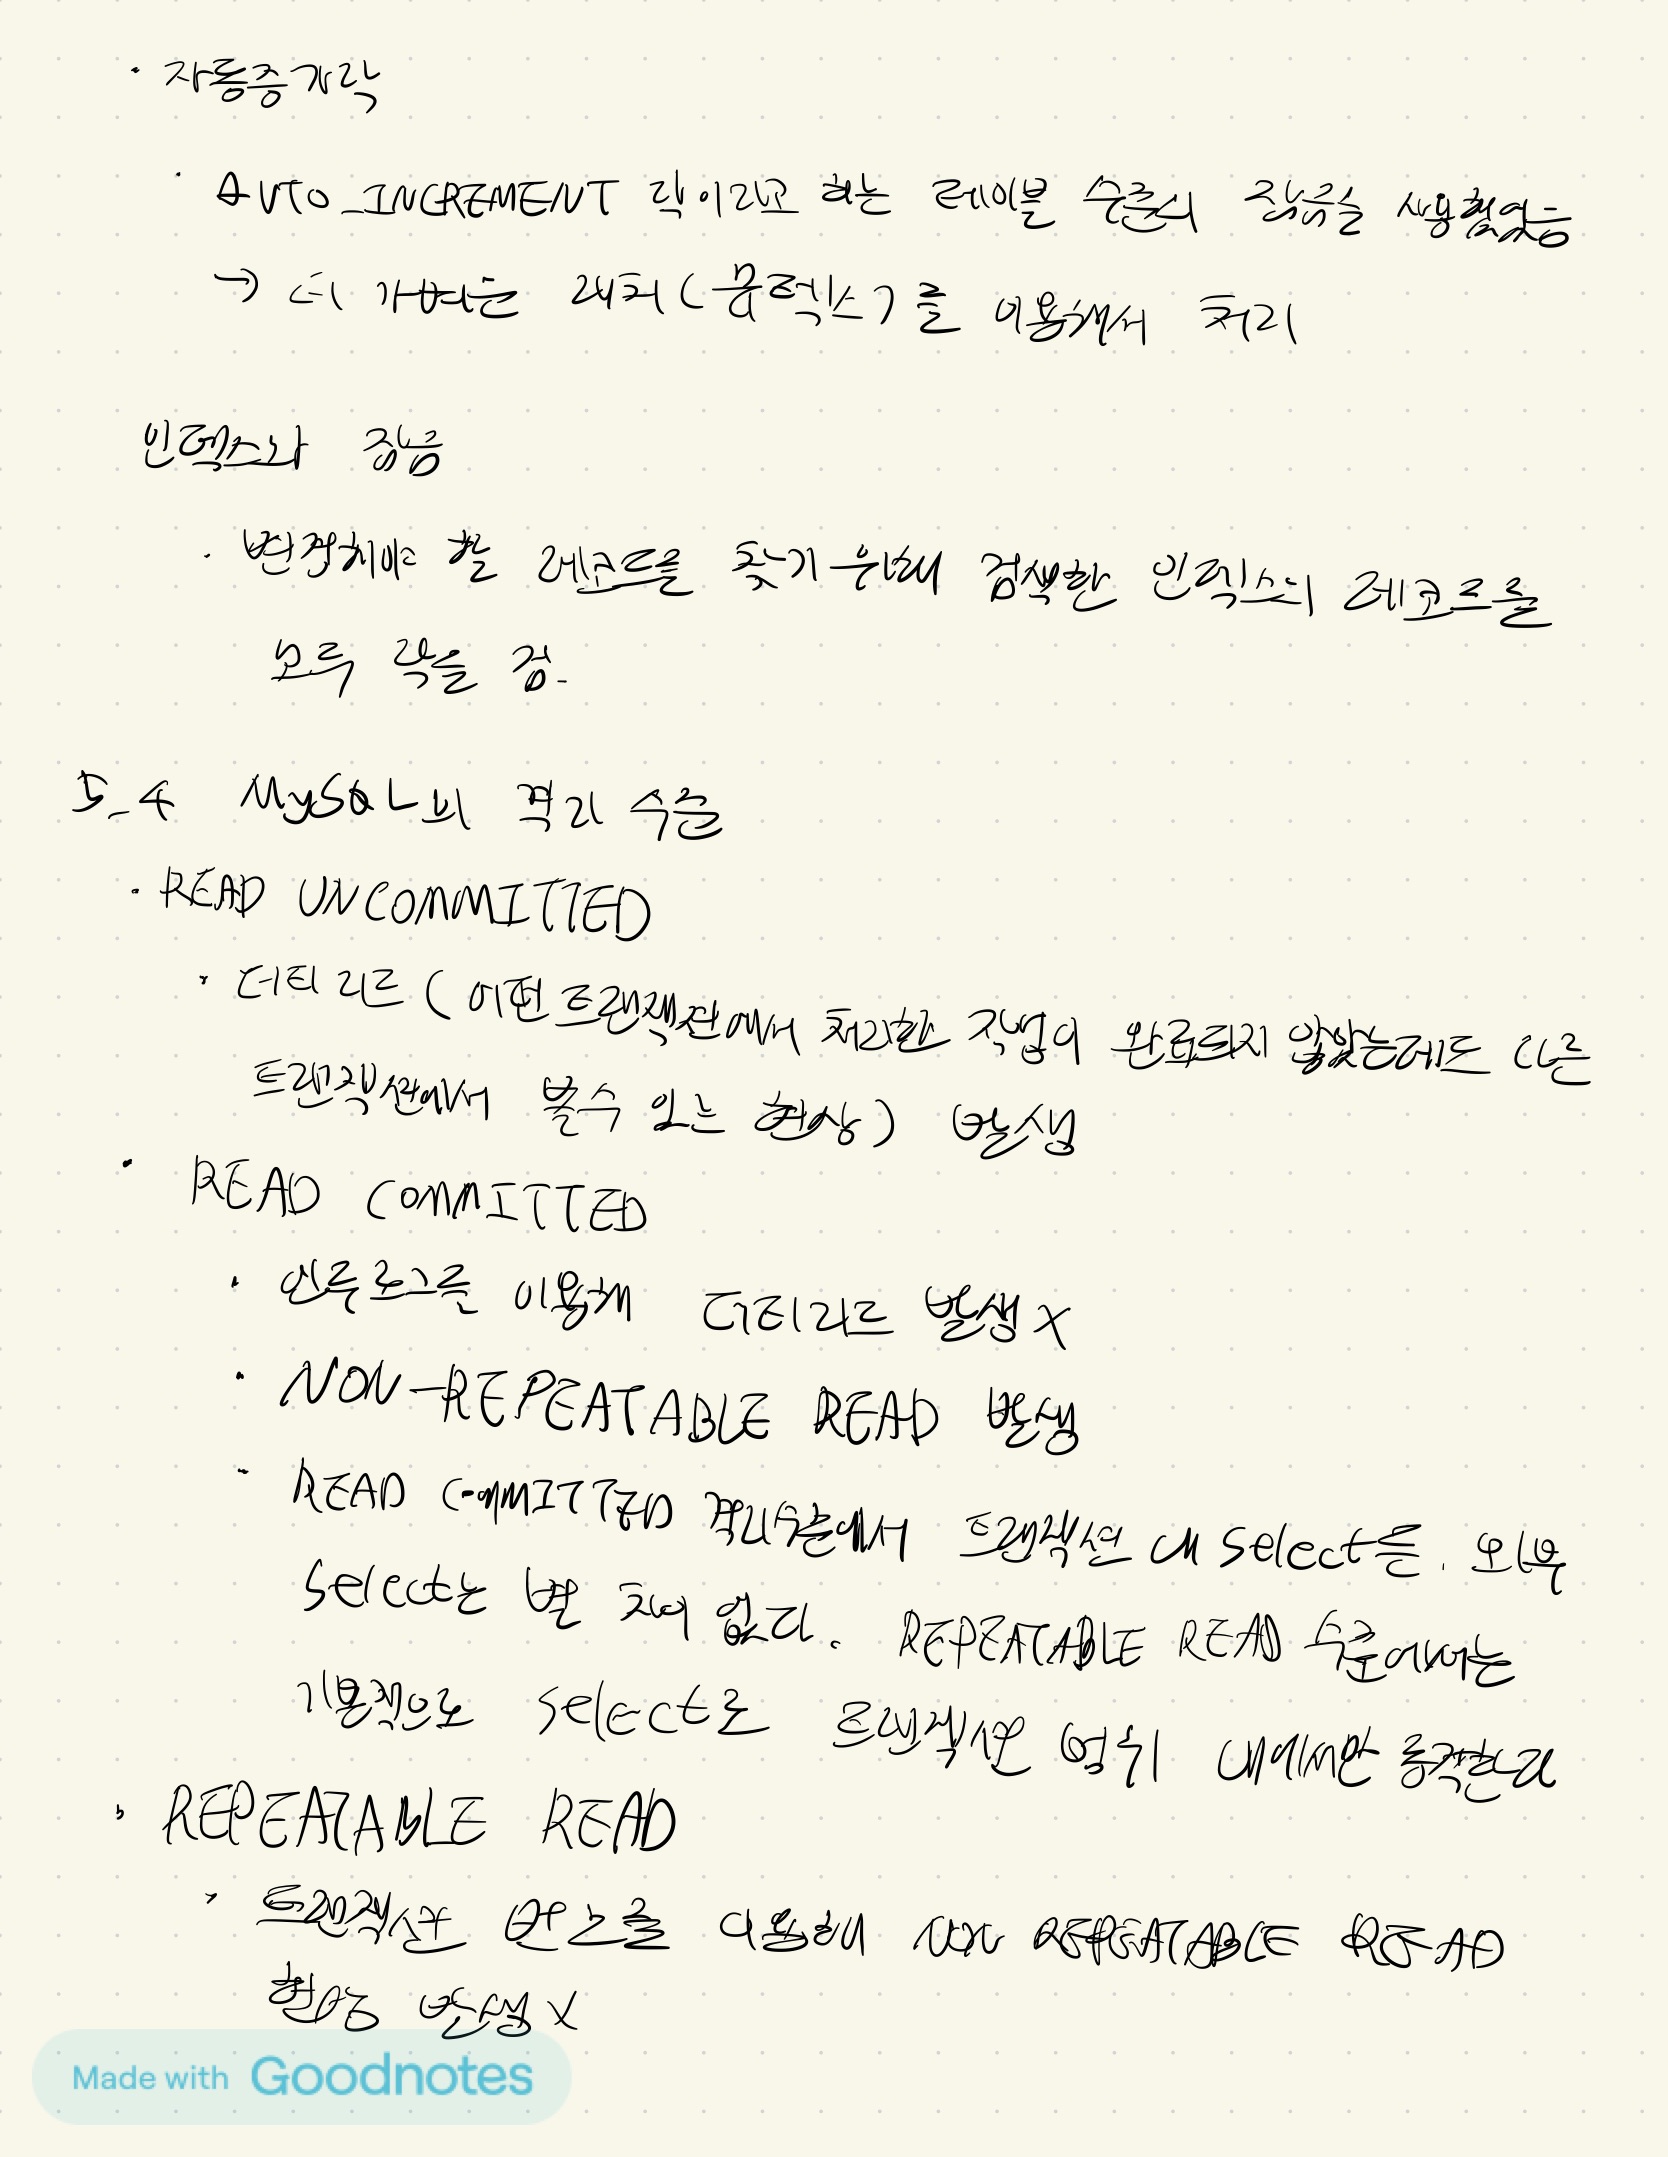 · 자동증가락
· AUTO_INCREMENT 락이라고 하는 테이블 수준의 잠금을 사용했었음
→ 더 가벼운 래치(뮤텍스)를 이용해서 처리
인덱스와 잠금
· 변경해야 할 레코드를 찾기 위해 검색한 인덱스의 레코드를
모두 락을 검.
5.4 MySQL의 격리 수준
· READ UNCOMMITTED
· 더티 리드 (어떤 트랜잭션에서 처리한 작업이 완료되지 않았는데도 다른
트랜잭션에서 볼수 있는 현상) 발생
· READ COMMITTED
· 언두로그를 이용해 더티리드 발생 X
· NON-REPEATABLE READ 발생
· READ COMMITTED 격리수준에서 트랜잭션 내 select를.
select는 별 차이 없다. REPEATABLE READ 수준에서는
기본적으로 select로 트랜잭션 범위 내에서만 동작한다
· REPEATABLE READ
· 트랜잭션 번호를 이용해 NON REPEATABLE READ
현상 발생 X
Made with Goodnotes